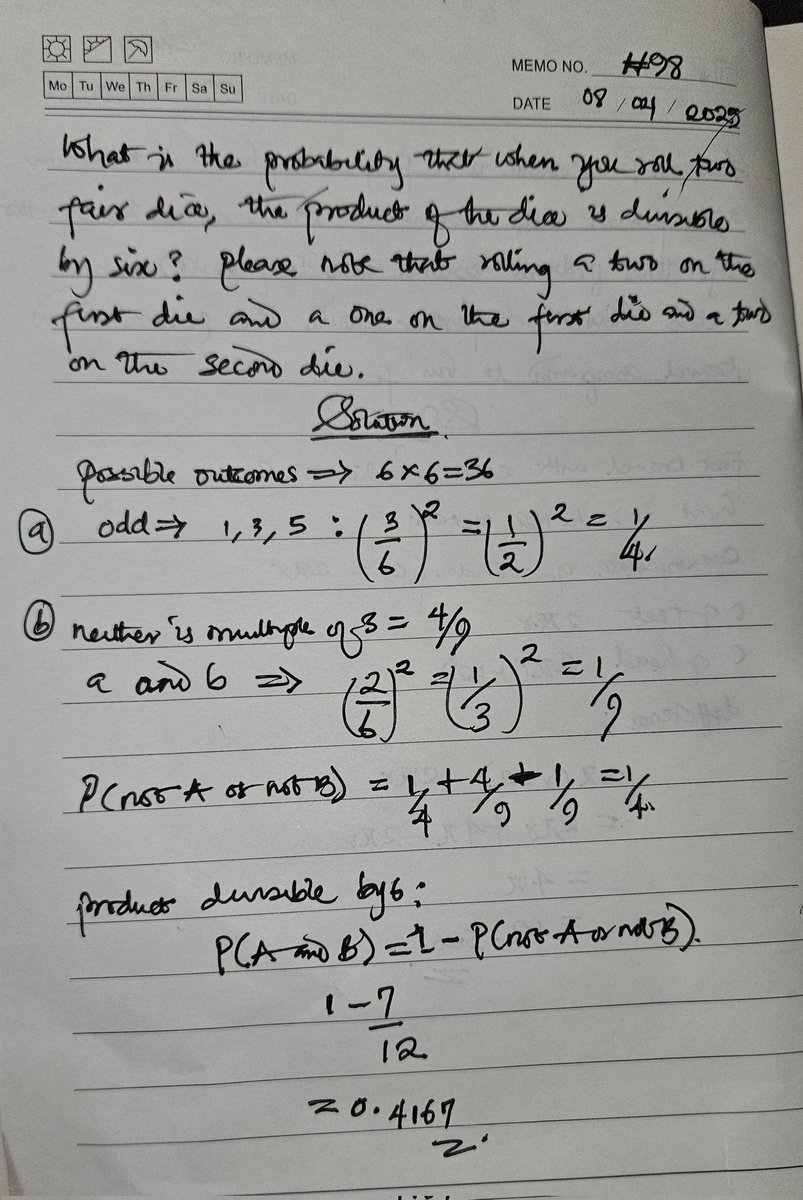 Mo Tu We Th Fr Sa Su
MEMO NO. #98
DATE 08/04/2025
What is the probability that when you roll two
fair dice, the product of the dice is divisible
by six? please note that rolling a two on the
first die and a one on the first die and a two
on the second die.
Solution
possible outcomes => 6×6=36
(a) odd => 1, 3, 5 : (3/6)^2 = (1/2)^2 = 1/4.
(b) neither is multiple of 3 = 4/9
a and b => (2/6)^2 = (1/3)^2 = 1/9
P(not A or not B) = 1/4 + 4/9 - 1/9 = 1/4.
product divisible by 6:
P(A and B) = 1 - P(not A or not B).
1 - 7/12
= 0.4167